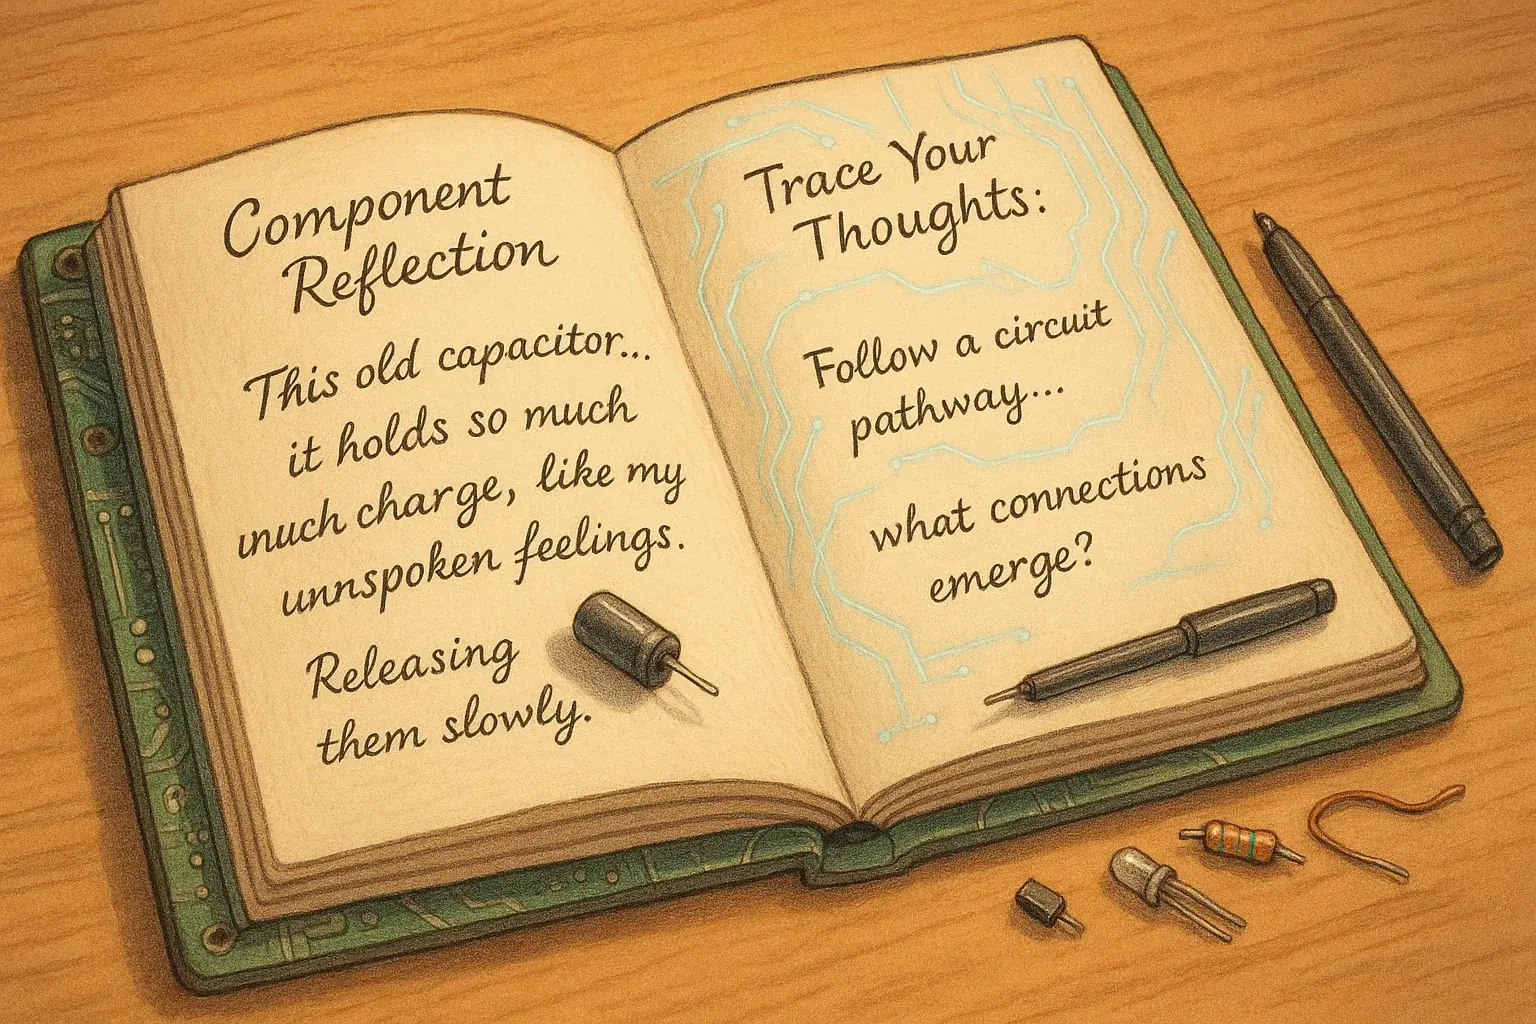 Component
Reflection
This old capacitor...
it holds so much
much charge, like my
unnspoken feelings.
Releasing
them slowly.
Trace Your
Thoughts:
Follow a circuit
pathway...
what connections
emerge?